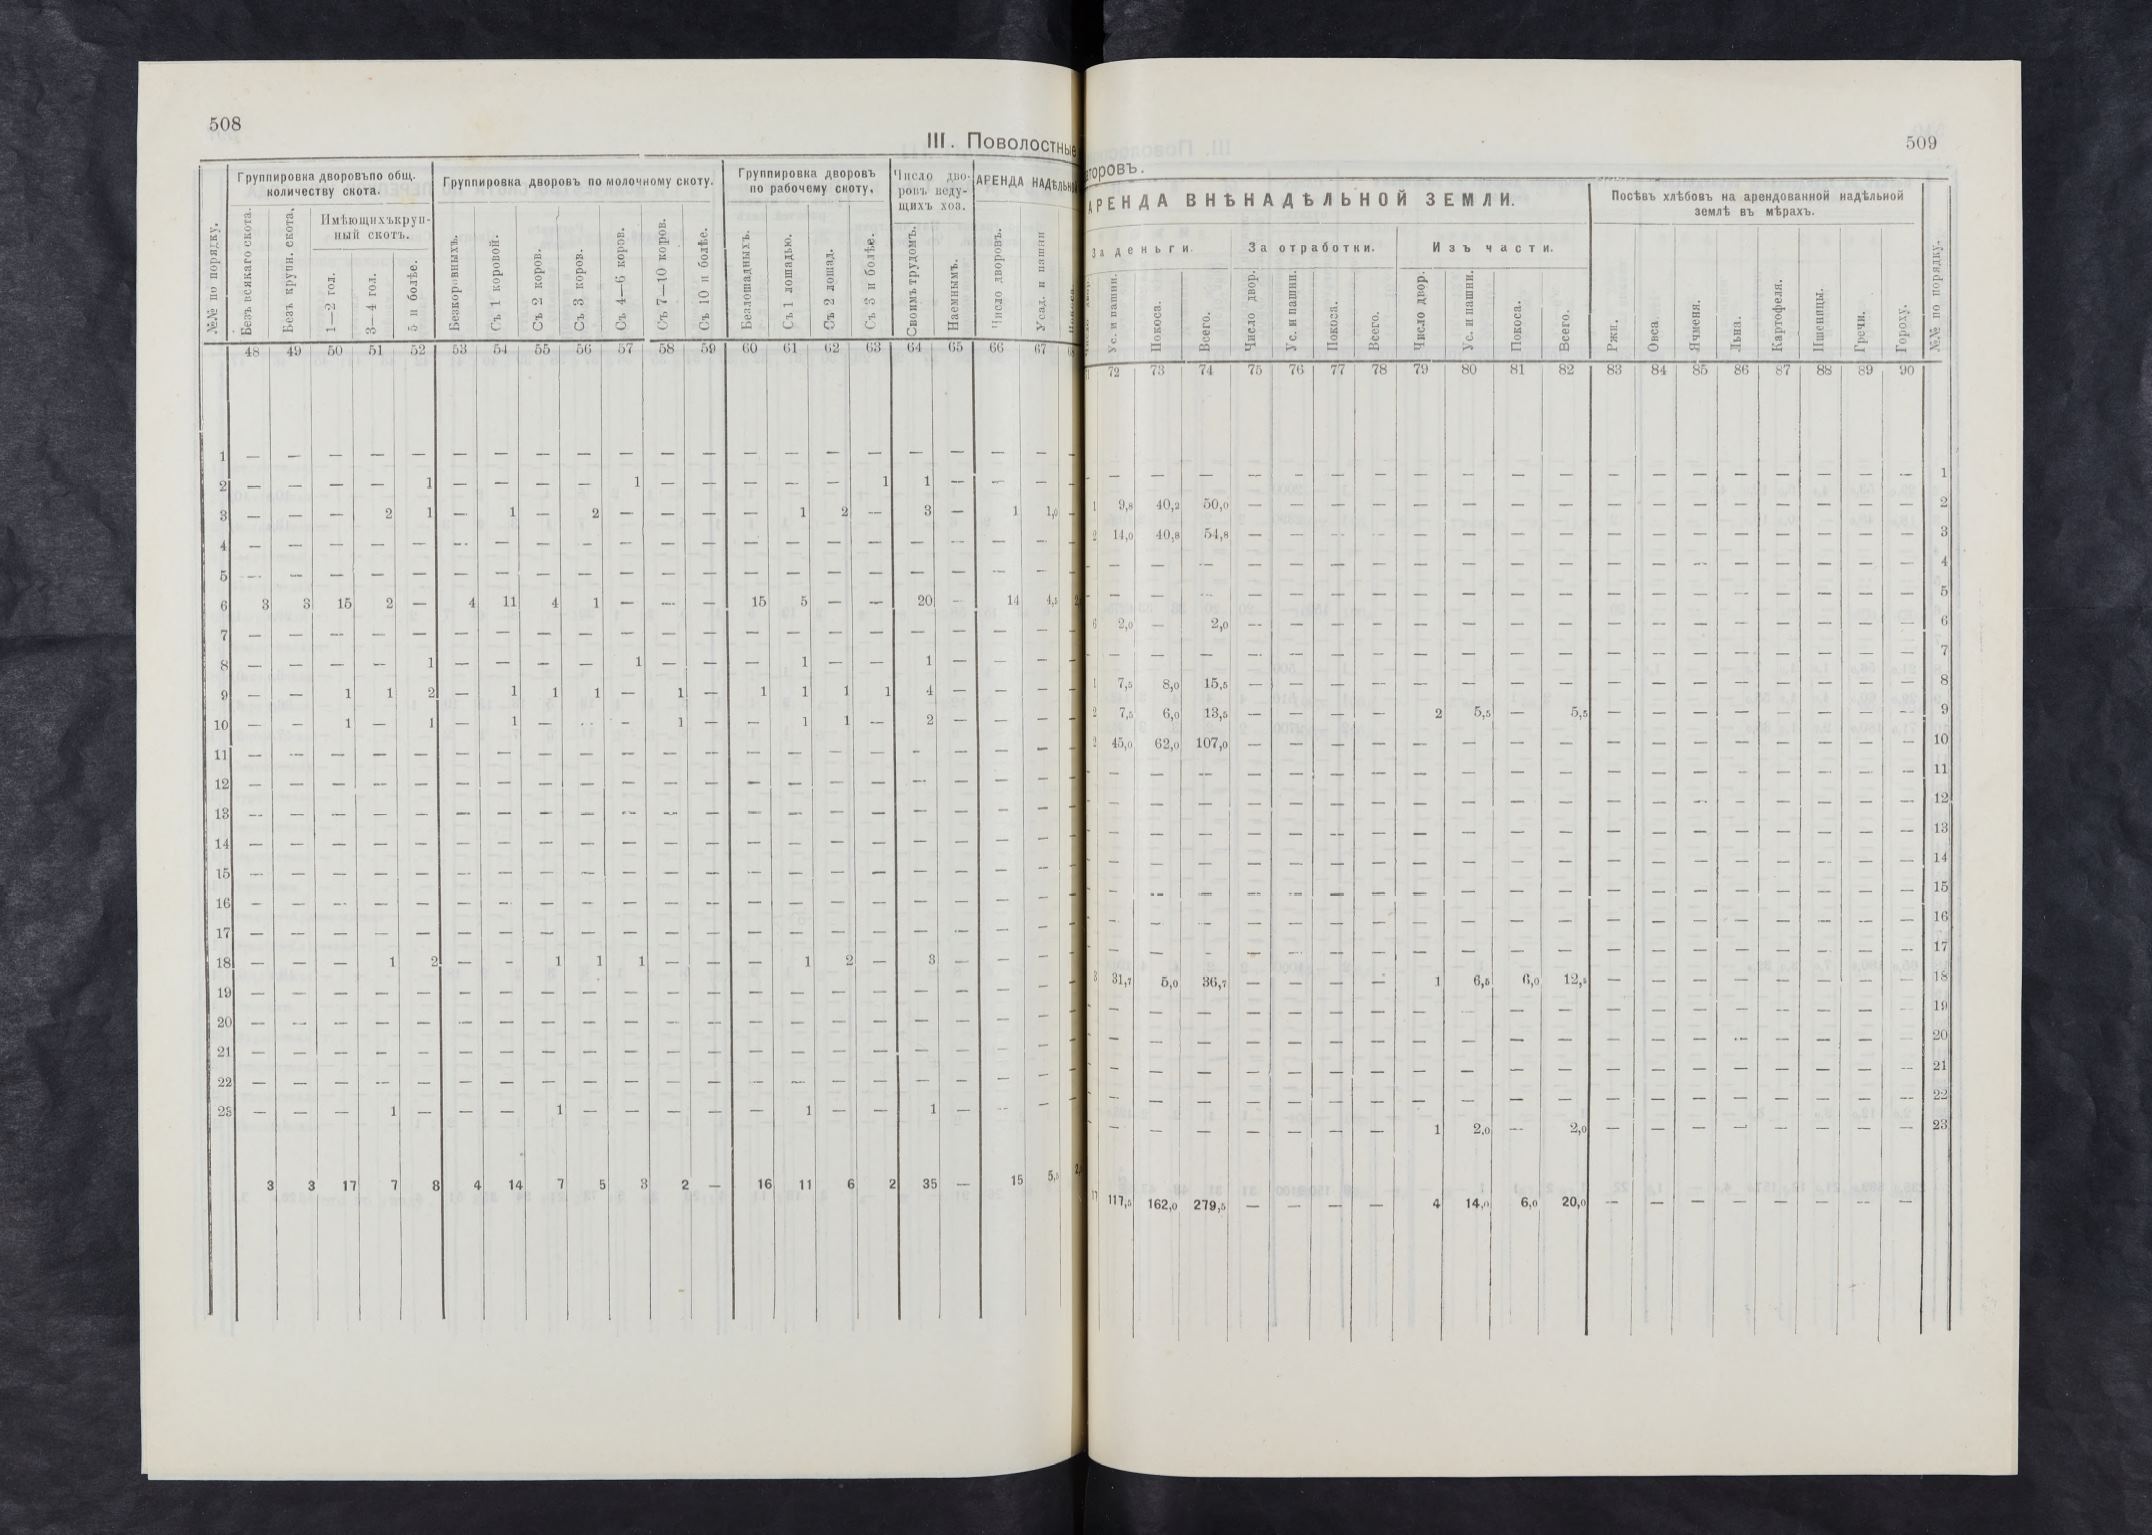 508
III. Поволостные
№№ по порядку.
Группировка дворовъпо общ. количеству скота.
Группировка дворовъ по молочному скоту.
Группировка дворовъ по рабочему скоту.
Число дворовъ ведущихъ хоз.
АРЕНДА НАДѢЛЬН
Имѣющихъкрупный скотъ.
Безъ всякаго скота. Безъ крупн. скота. 1—2 гол. 3—4 гол. 5 и болѣе. Безкоровныхъ. Съ 1 коровой. Съ 2 коров. Съ 3 коров. Съ 4—6 коров. Съ 7—10 коров. Съ 10 и болѣе. Безлошадныхъ. Съ 1 лошадью. Съ 2 лошад. Съ 3 и болѣе. Своимъ трудомъ. Наемнымъ. Число дворовъ. Усад. и пашни
48 49 50 51 52 53 54 55 56 57 58 59 60 61 62 63 64 65 66 67
1 — — — — — — — — — — — — — — — — — — — — —
2 — — — — 1 — — — — 1 — — — — — 1 1 — — — —
3 — — — 2 1 — 1 — 2 — — — — 1 2 — 3 — 1 1,0 —
4 — — — — — — — — — — — — — — — — — — — — —
5 — — — — — — — — — — — — — — — — — — — — —
6 3 3 15 2 — 4 11 4 1 — — — 15 5 — — 20 — 14 4,5
7 — — — — — — — — — — — — — — — — — — — — —
8 — — — — 1 — — — — 1 — — — 1 — — 1 — — — —
9 — — 1 1 2 — 1 1 1 — 1 — 1 1 1 1 4 — — — —
10 — — 1 — 1 — 1 — — — 1 — — 1 1 — 2 — — — —
11 — — — — — — — — — — — — — — — — — — — — —
12 — — — — — — — — — — — — — — — — — — — — —
13 — — — — — — — — — — — — — — — — — — — — —
14 — — — — — — — — — — — — — — — — — — — — —
15 — — — — — — — — — — — — — — — — — — — — —
16 — — — — — — — — — — — — — — — — — — — — —
17 — — — — — — — — — — — — — — — — — — — — —
18 — — — 1 2 — — 1 1 1 — — — 1 2 — 3 — — — —
19 — — — — — — — — — — — — — — — — — — — — —
20 — — — — — — — — — — — — — — — — — — — — —
21 — — — — — — — — — — — — — — — — — — — — —
22 — — — — — — — — — — — — — — — — — — — — —
23 — — — 1 — — — 1 — — — — — 1 — — 1 — — —
3 3 17 7 8 4 14 7 5 3 2 — 16 11 6 2 35 — 15 5,5
509
торовъ.
АРЕНДА ВНѢНАДѢЛЬНОЙ ЗЕМЛИ.
Посѣвъ хлѣбовъ на арендованной надѣльной землѣ въ мѣрахъ.
№№ по порядку.
За деньги. За отработки. Изъ части.
Ус. и пашни. Покоса. Всего. Число двор. Ус. и пашни. Покоса. Всего. Число двор. Ус. и пашни. Покоса. Всего. Ржи. Овса. Ячменя. Льна. Картофеля. Пшеницы. Гречи. Гороху.
72 73 74 75 76 77 78 79 80 81 82 83 84 85 86 87 88 89 90
— — — — — — — — — — — — — — — — — — — 1
1 9,8 40,2 50,0 — — — — — — — — — — — — — — — — 2
2 14,0 40,8 54,8 — — — — — — — — — — — — — — — — 3
— — — — — — — — — — — — — — — — — — — 4
— — — — — — — — — — — — — — — — — — — 5
6 2,0 — 2,0 — — — — — — — — — — — — — — — — 6
— — — — — — — — — — — — — — — — — — — 7
1 7,5 8,0 15,5 — — — — — — — — — — — — — — — — 8
2 7,5 6,0 13,5 — — — — 2 5,5 — 5,5 — — — — — — — — 9
2 45,0 62,0 107,0 — — — — — — — — — — — — — — — — 10
— — — — — — — — — — — — — — — — — — — 11
— — — — — — — — — — — — — — — — — — — 12
— — — — — — — — — — — — — — — — — — — 13
— — — — — — — — — — — — — — — — — — — 14
— — — — — — — — — — — — — — — — — — — 15
— — — — — — — — — — — — — — — — — — — 16
— — — — — — — — — — — — — — — — — — — 17
3 31,7 5,0 36,7 — — — — 1 6,5 6,0 12,5 — — — — — — — — 18
— — — — — — — — — — — — — — — — — — — 19
— — — — — — — — — — — — — — — — — — — 20
— — — — — — — — — — — — — — — — — — — 21
— — — — — — — — — — — — — — — — — — — 22
— — — — — — — 1 2,0 — 2,0 — — — — — — — — 23
17 117,5 162,0 279,5 — — — — 4 14,0 6,0 20,0 — — — — — — — —